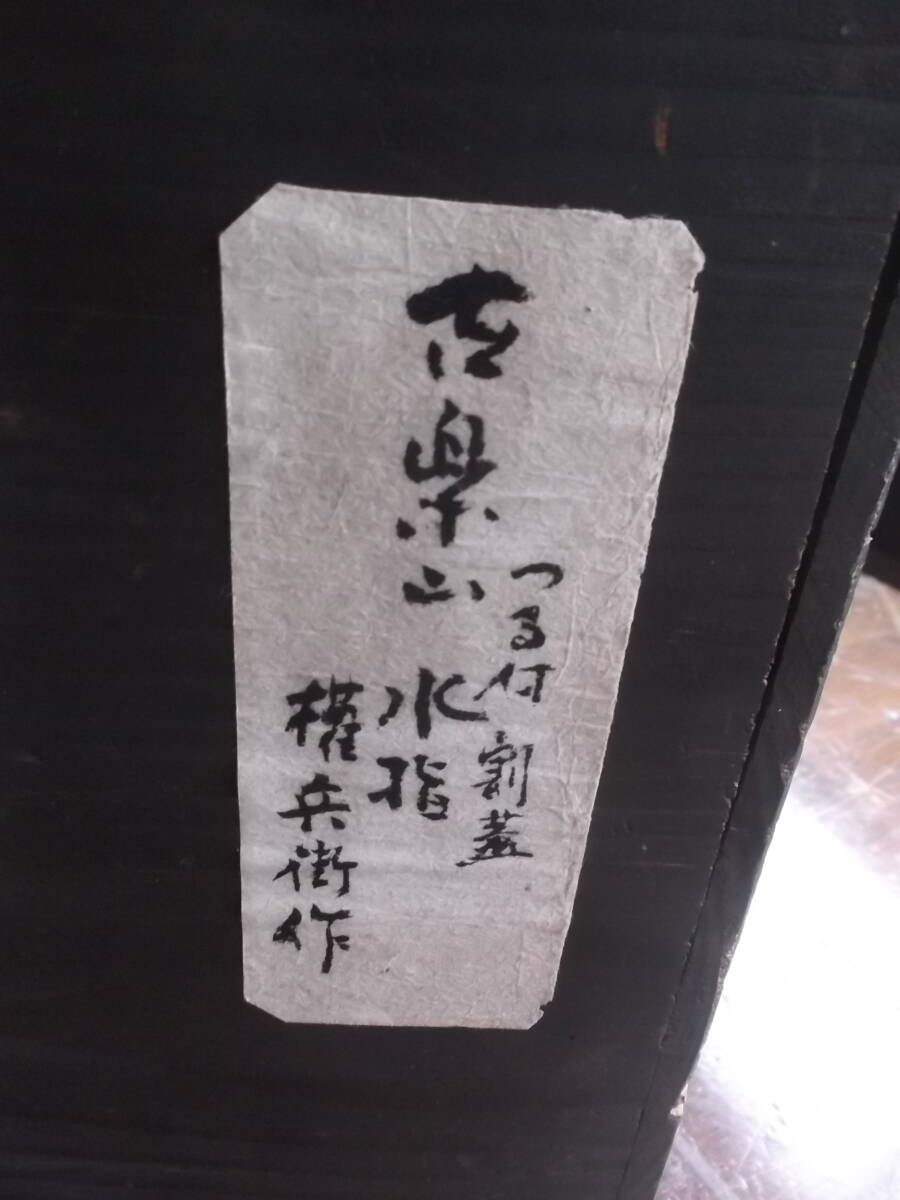 古楽山
つる付
水指
割蓋
権兵衛作